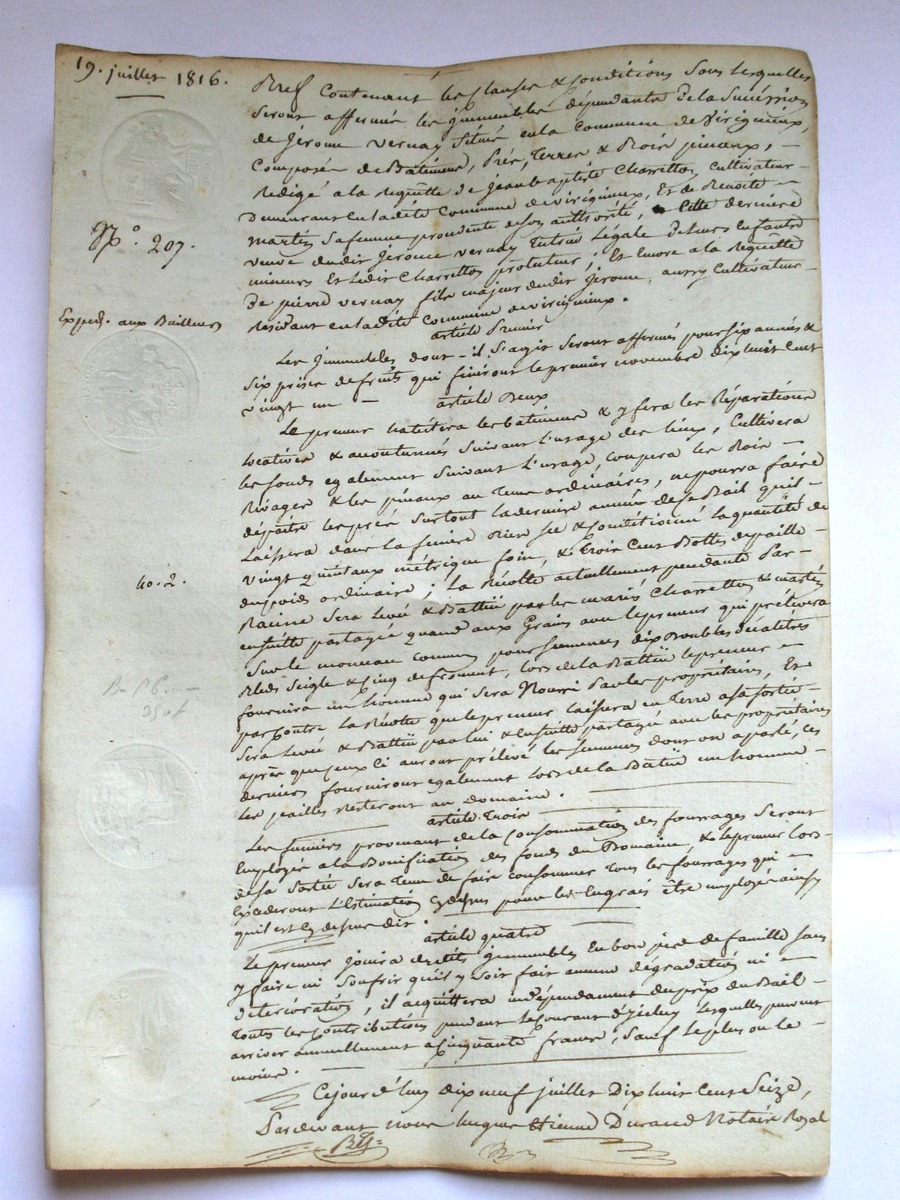 19. juillet 1816.
Bref Contenant les Clauses & Conditions Sous lesquelles
Seront affermés les immeubles dépendants de la Succession
de Jérome Vernay Situés en la Commune de Virigneux,
Composés de Batiments, Prés, Terres & Bois pinaux, –
Redigé a la requette de jean baptiste Charretton, cultivateur
Demeurant en ladite Commune de virigneux, Et de Benoite –
martin Sa femme procedente de son authorité, Cette derniere
N.o 207.
veuve dudit Jerome vernay Tutrice Légale de leurs Enfants
mineurs Et ledit Charretton protuteur; Et Encore a la Requette
De pierre vernay fils majeur dudit Jerome, aussy Cultivateur
résidant en ladite Commune de virigneux.
Exped. aux Bailleurs
article Premier
Les Immeubles dont – il S'agit Seront affermés pour Six années &
Six prises de fruits qui finiront le premier novembre dix huit Cent
vingt un –
article Deux
Le preneur habitera les batiments & y fera les Réparations
locatives & accoutumées Suivant L'usage des lieux, Cultivera
les fonds egalement Suivant L'usage, coupera les Bois –
Rivages & les pinaux au Tems ordinaires, ne pourra faire
dépaitre les prés Surtout la derniere année de Bail qu'il –
Laissera dans la feniere Bien Sec & Conditionné la quantité de
vingt quintaux métrique foin, & Trois Cent Bottes de paille –
du poids ordinaire; La Récolte actuellement pendante Par –
no. 2.
Racine Sera Levée & Battue par les mariés Charretton & martin
ensuitte partagée quand aux Grains avec le preneur qui prélèvera
Sur le monceau commun pour Semences dix Doubles décalitres
Bleds Seigle & Cinq de froment, lors de la Battue le preneur –
fournira un homme qui Sera Nourri Par les propriétaires, Et
par Contre La Récolte que le preneur laissera en Terre a Sa Sortie –
Sera Levée & Battue par lui & Ensuitte partagée avec les propriétaires
après que Ceux Ci auront prélevé les Semences dont on a parlé, ces
derniers fourniront egalement Lors de la Battue un homme –
les pailles resteront au Domaine.
article Trois
Les fumiers provenant de la Consommation des fourrages Seront
Employés a la Bonification des fonds du Domaine, & le preneur Lors
de sa Sortie Sera Tenu de faire consommer Tous les fourrages qui –
Excederont L'Estimation Cy dessus pour les Engrais être employés ainsy
qu'il est Cy dessus dit.
article quatre
Le preneur jouira desdits immeubles En bon père de famille Sans
y faire ni Souffrir qu'il y Soit fait aucune dégradation ni –
déterioration, il acquittera indépendament du prix du Bail –
Toutes les Contributions pendant le Courant d'icelui lesquelles peuvent
arriver annuellement a Cinquante francs, Sauf le plus ou le –
moins.
Cejourd'hui dix neuf juillet Dix huit Cent Seize,
Pardevant nous hugues Etienne Durand Notaire Royal